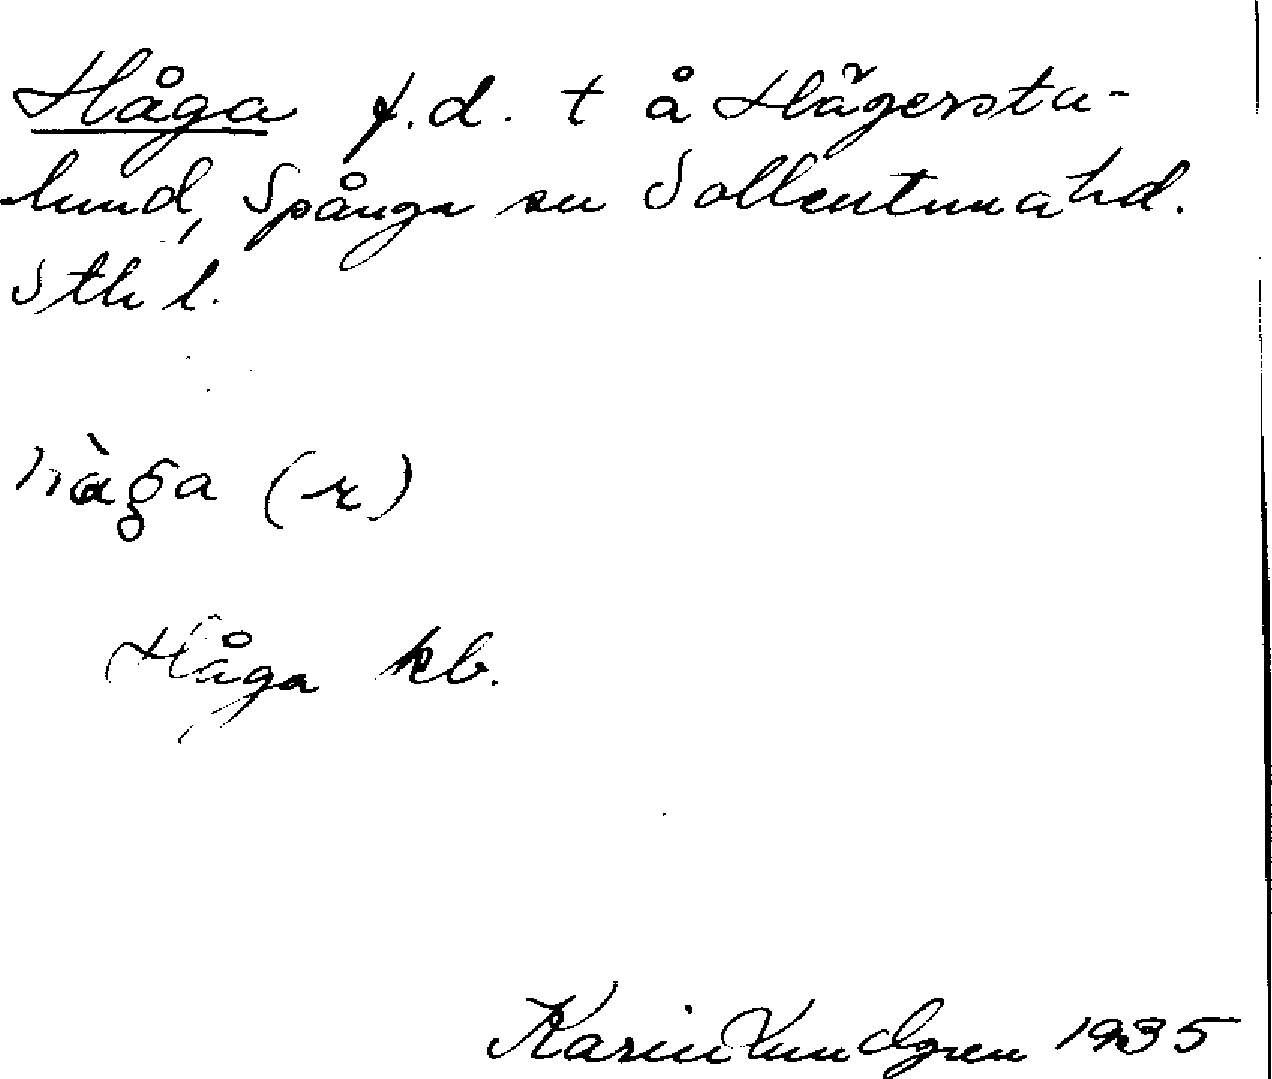 Håga f.d. t å Hägerstalund, Spånga sn Sollentuna hd.
Sth l.
hàga (r)
Håga kb.
Karin Lundgren 1935